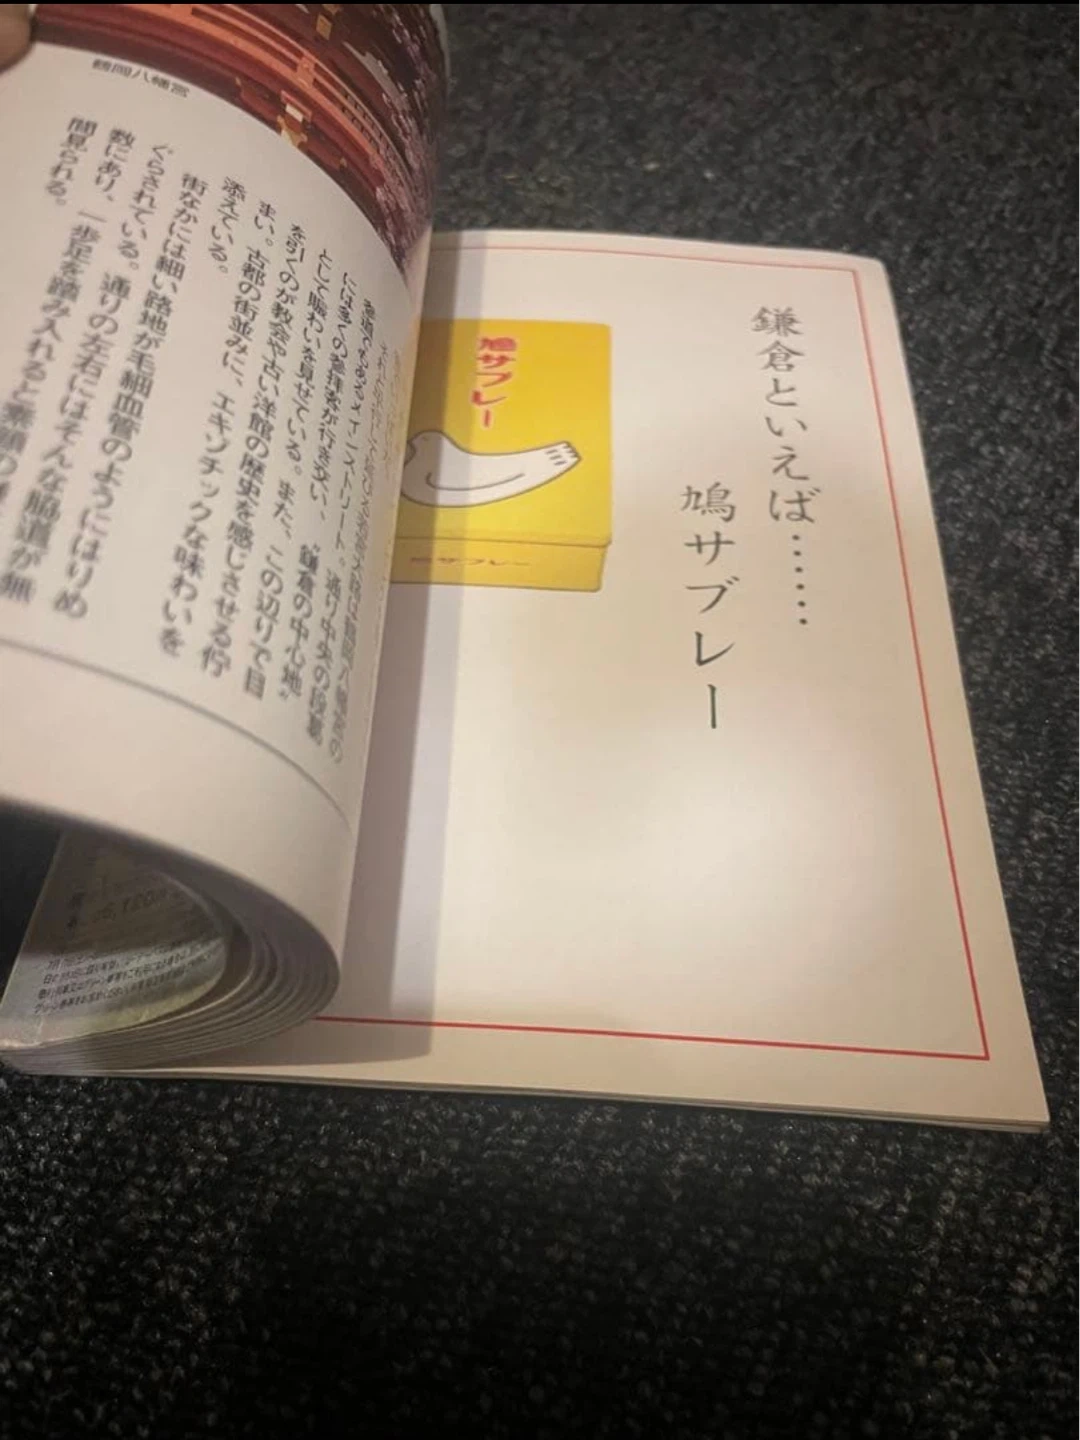 鎌倉といえば……
鳩サブレー
鳩サブレー
鳩サブレー
鶴岡八幡宮
参道でもあるメインストリート。通り中央の段葛
には多くの参拝客が行き交い、“鎌倉の中心地”
として賑わいを見せている。また、この辺りで目
を引くのが教会や古い洋館の歴史を感じさせる佇
まい。古都の街並みに、エキゾチックな味わいを
添えている。
街なかには細い路地が毛細血管のようにはりめ
ぐらされている。通りの左右にはそんな脇道が無
数にあり、一歩足を踏み入れると素顔の
間見られる。